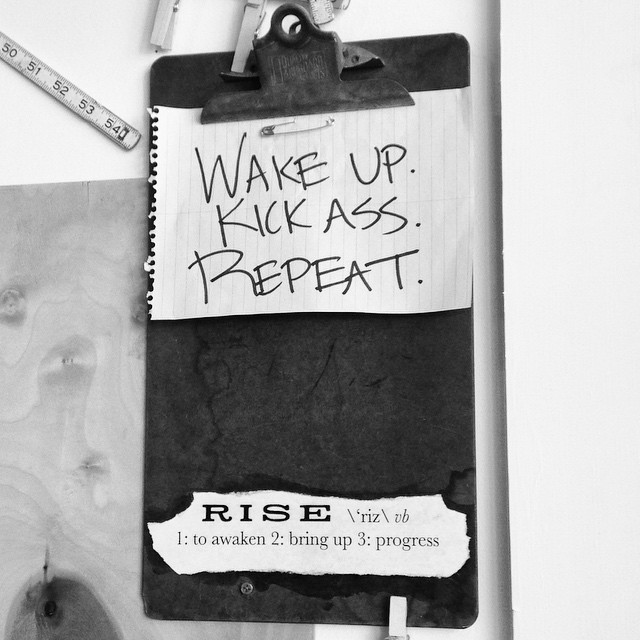 50 51 52 53 54
WAKE UP.
KICK ASS.
REPEAT.
RISE \'riz\ vb
1: to awaken 2: bring up 3: progress